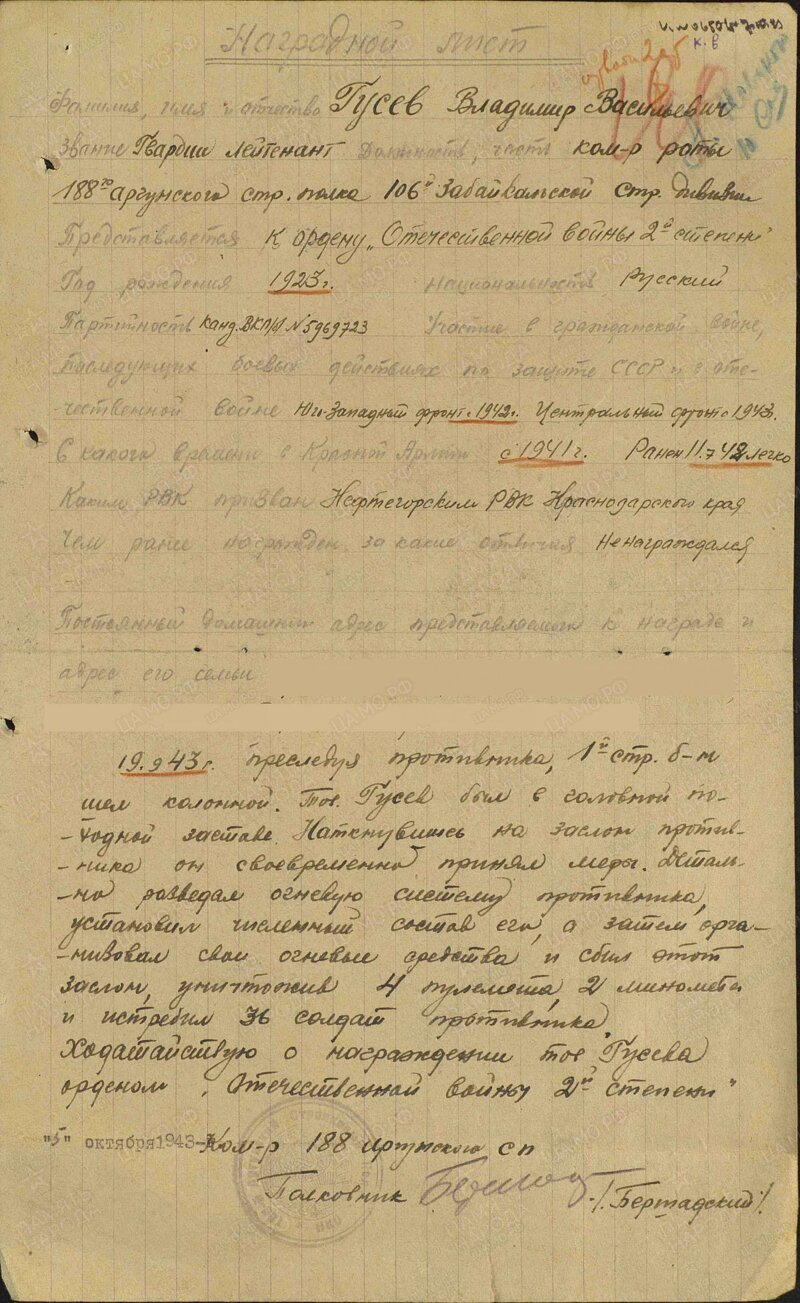 Наградной лист
Фамилия, имя и отчество Гусев Владимир Васильевич
Звание Гвардии лейтенант Должность, часть ком-р роты
188го Аргунского стр. полка 106й Забайкальской стр. дивизии
Представляется к ордену „Отечественной войны 2й степени"
Год рождения 1923г. Национальность Русский
Партийность канд. ВКП/б/ №5969723 Участие в гражданской войне,
последующих боевых действиях по защите СССР и в оте-
-чественной войне Юго-Западный фронт с 1942г. Центральный фронт с 1943.
С какого времени в Красной Армии с 1941г. Ранен 11.7.42 легко
Каким РВК призван Нефтегорским РВК Краснодарского края
Чем ранее награжден, за какие отличия Не награждался
Постоянный домашний адрес представляемого к награде и
адрес его семьи
19.9.43г. преследуя противника, 1й стр. б-н
шел колонной. Тов. Гусев был в головной по-
-ходной заставе. Наткнувшись на заслон против-
-ника он своевременно принял меры. Деталь-
-но разведал огневую систему противника,
установил численный состав его, а затем орга-
-низовал свои огневые средства и сбил этот
заслон, уничтожив 4 пулемета, 2 миномета
и истребил 36 солдат противника.
Ходатайствую о награждении тов. Гусева
орденом „Отечественной войны 2й степени"
"5" октября 1943 Ком-р 188 Аргунского сп
Полковник /Бертадский/